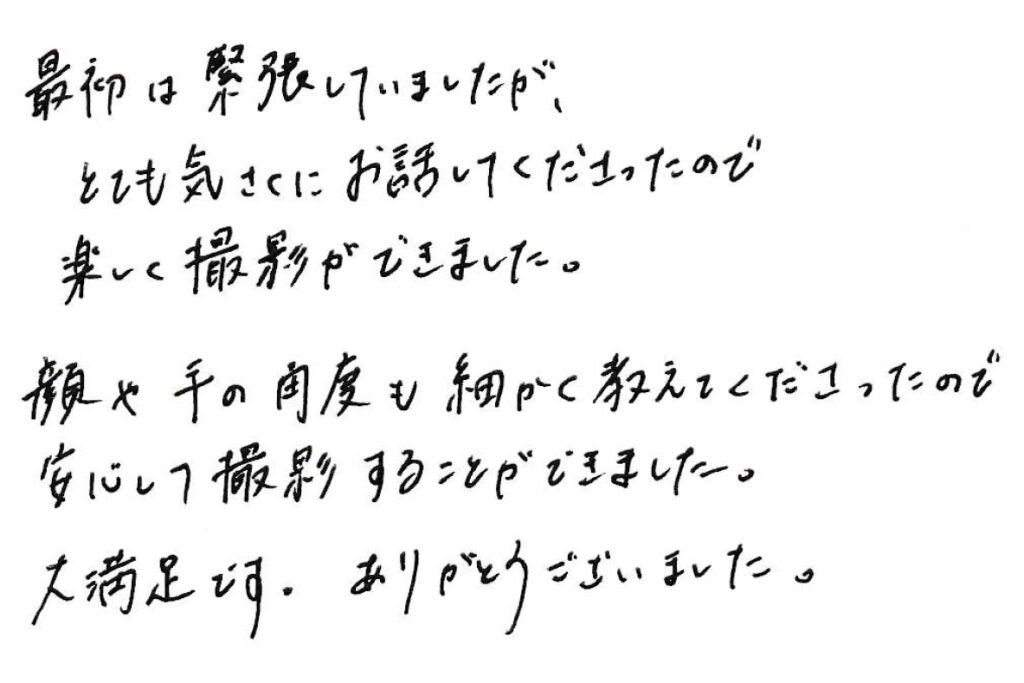 最初は緊張していましたが、
とても気さくにお話してくださったので
楽しく撮影ができました。
顔や手の角度も細かく教えてくださったので
安心して撮影することができました。
大満足です。ありがとうございました。